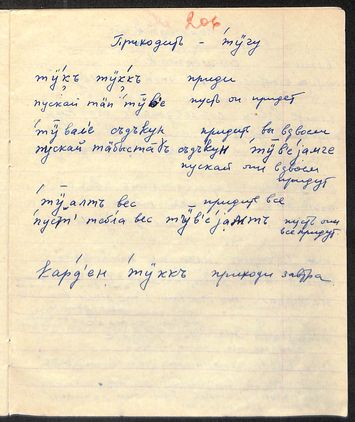 206
Приходить – тӱгу
тӱкъ тӱккъ приди
пускай тӓн тӱв̄е пусть он придет
тӱвале съдъкун придите вы вдвоем
пускай тӓбыстаӷъ съдъкун тӱве'јамге
пускай они вдвоем
придут
тӱалтъ вес придите все
пуст' тебла вес тӱв'ејамтъ пусть они
все придут
Кӓрд'ен тӱккъ приходи завтра